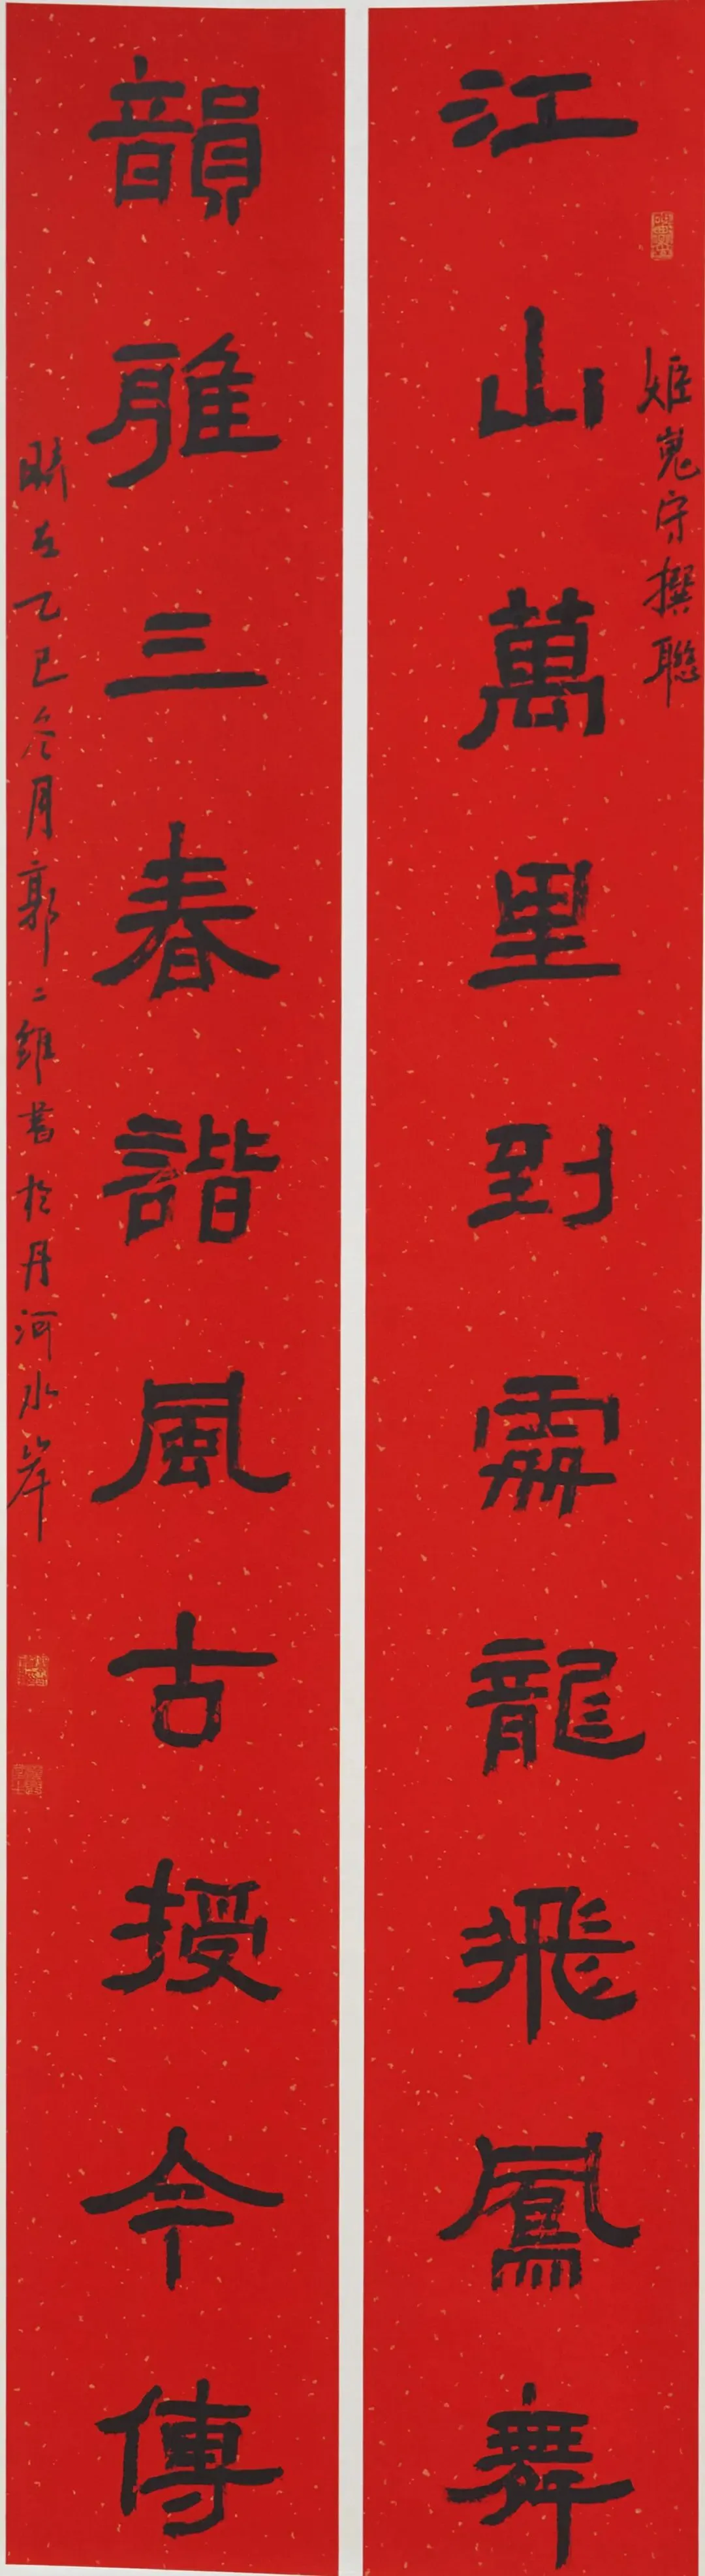 江山萬里到處龍飛鳳舞
守撰聯
韻雅三春諧風古授今傳
時在乙巳冬月郭二書於丹河水岸